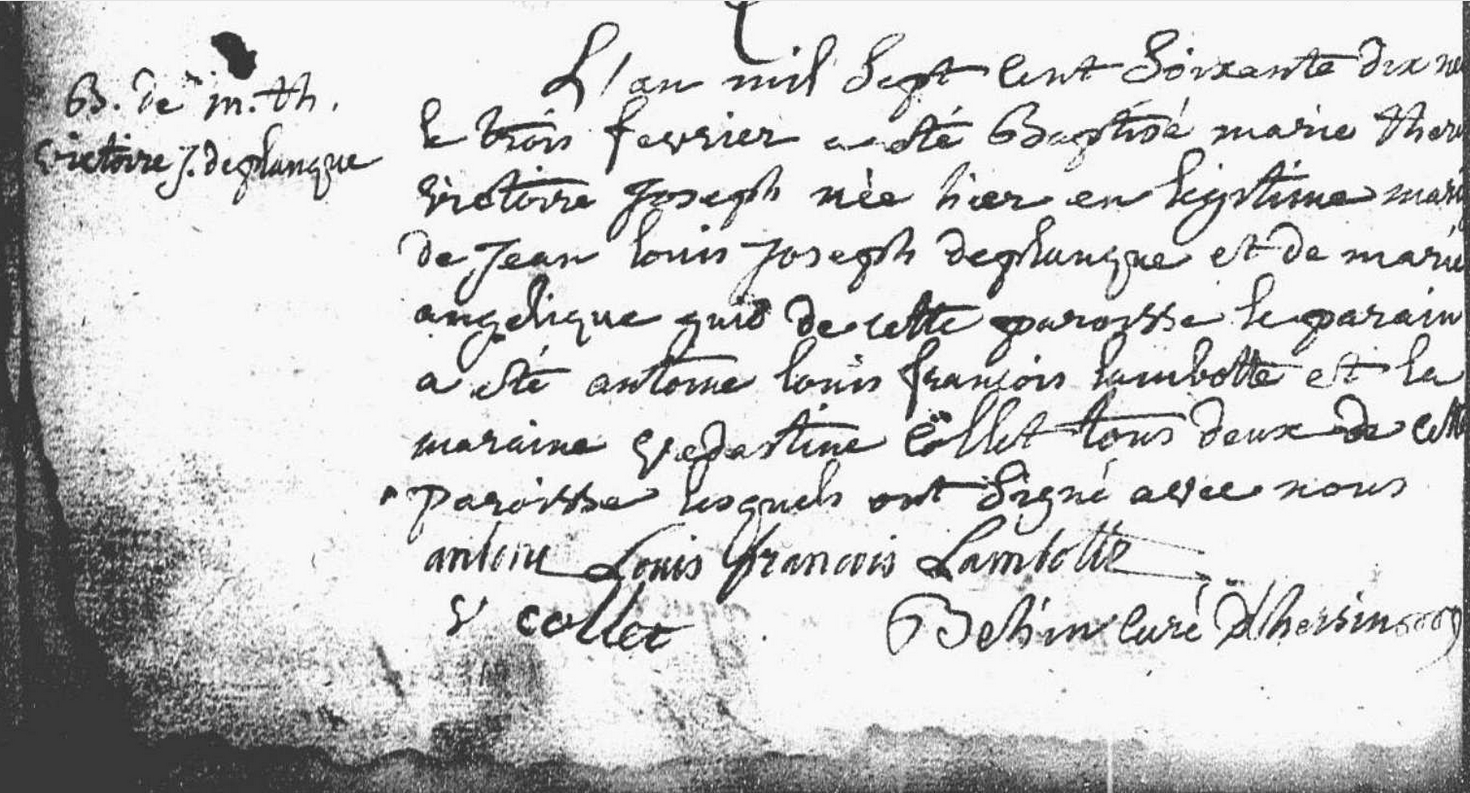 B. de m. th.
victoire j. deplanque
L'an mil sept cent soixante dix ne
le trois fevrier a eté Baptisé marie ther
victoire joseph née hier en legitime mari
de jean louis joseph deplanque et de marie
angelique guid de cette paroisse le parain
a eté antoine louis françois lambotte et la
maraine vedastine collet tous deux de cette
paroisse lesquels ont signé avec nous
antoine Louis françois Lambotte
v collet
Behin curé d'hersin